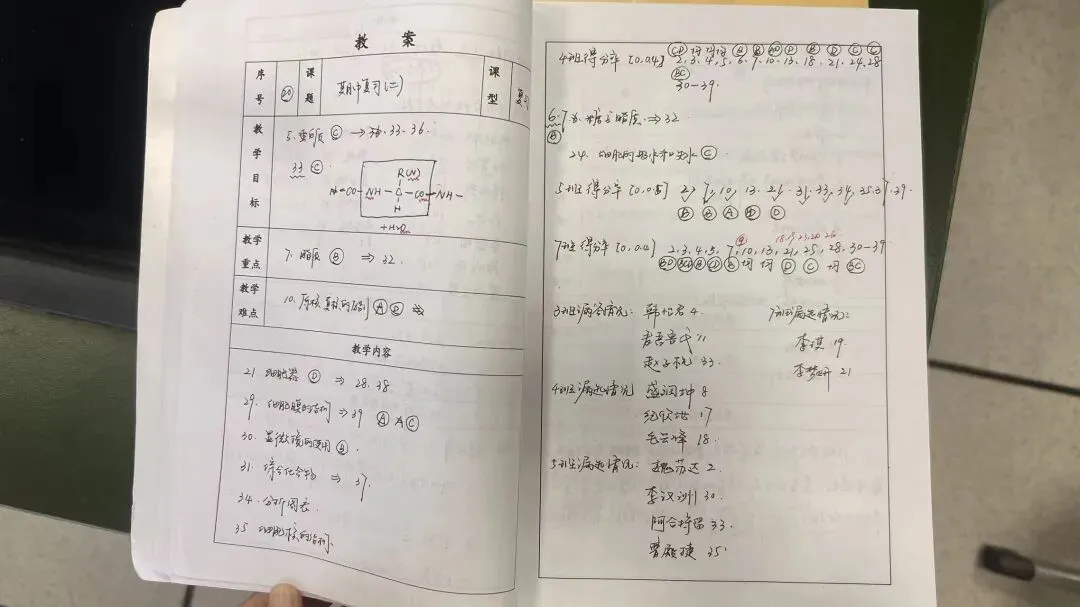 教 案
序号 20 课题 期中复习(二) 课型 复习
教学目标
5. 蛋白质 C → 33. 36.
33 C
R(N)
N-CO-NH-C-CO-NH-
H
+H2O
教学重点
7. 脂质 B ⇒ 32.
教学难点
10. 原核真核的区别 A D
教学内容
21 细胞器 D ⇒ 28. 38.
29. 细胞膜的结构 ⇒ 39 A A C
30. 显微镜的使用
31. 综合化合物 ⇒ 37.
34. 分析图表.
35 细胞核的结构.
CD 均 均 B B AD D B D C C
4班得分率[0,0.4] 2,3,4,5,6,7,10,13,18,21,24,28
BC
30-39.
6.7.8. 糖与脂质 ⇒ 32.
B
24. 细胞的吸水和失水 C.
5班得分率[0,0.5] 2, 7, 10, 13. 21. 31. 33, 34, 35.37.39.
D B A D
18.19.23.20 26
7班得分率[0,0.4] 2,3,4,5, 7,10,13,21,25,28,30-39
BD BCD B CD B 均 均 D C 均 BC
3班漏答情况: 4.
11
33.
7班漏题情况:
李琪 19
李梦妍 21
4班漏题情况 盛润坤 8
17
毛云峰 18.
5班漏题情况: 魏苏达 2.
李汉洲 30.
33.
35.